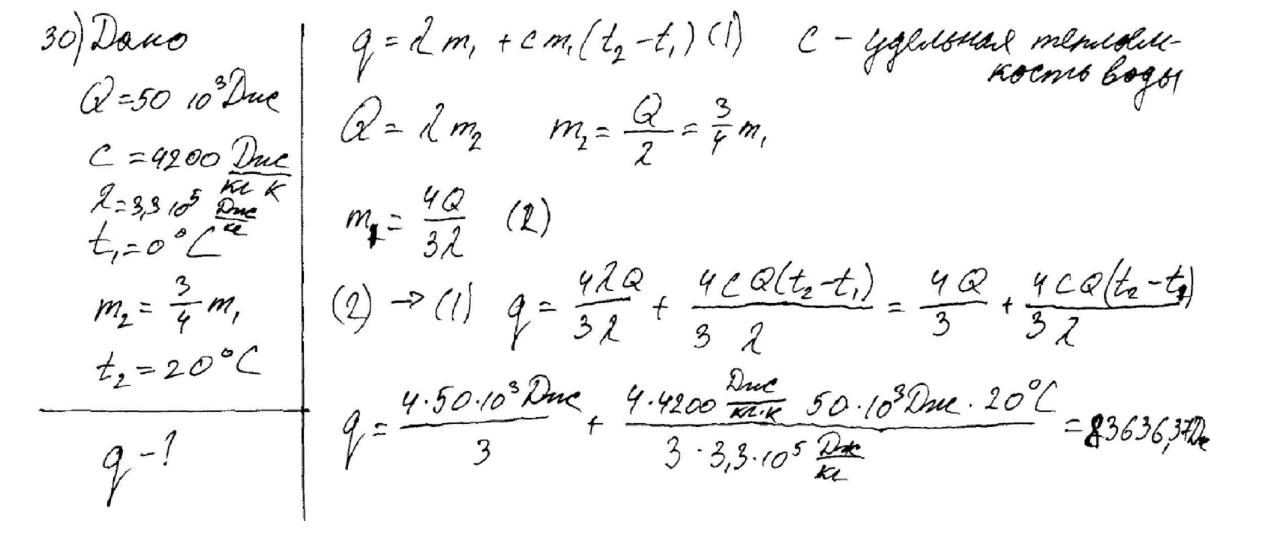 30) Дано
Q = 50 10³ Дж
c = 4200 Дж/кг К
λ = 3,3 10⁵ Дж/кг
t₁ = 0°C
m₂ = 3/4 m₁
t₂ = 20°C
q - ?
q = λ m₁ + c m₁ (t₂ - t₁) (1) c - удельная теплоем-
кость воды
Q = λ m₂ m₂ = Q/λ = 3/4 m₁
m₁ = 4Q/3λ (2)
(2) → (1) q = 4λQ/3λ + 4cQ(t₂ - t₁)/3 λ = 4Q/3 + 4cQ(t₂ - t₁)/3λ
q = 4·50·10³ Дж/3 + 4·4200 Дж/кг·К 50·10³ Дж·20°C/3·3,3·10⁵ Дж/кг = 83636,37 Дж